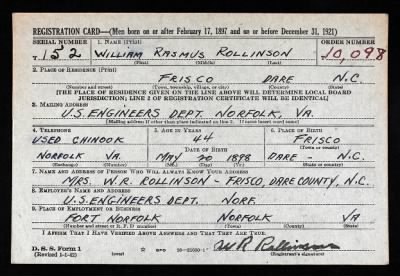 REGISTRATION CARD—(Men born on or after February 17, 1897 and on or before December 31, 1921)
SERIAL NUMBER 1. NAME (Print) ORDER NUMBER
T 152 WILLIAM RASMUS ROLLINSON 10,098
(First) (Middle) (Last)
2. PLACE OF RESIDENCE (Print)
FRISCO DARE N.C.
(Number and street) (Town, township, village, or city) (County) (State)
[THE PLACE OF RESIDENCE GIVEN ON THE LINE ABOVE WILL DETERMINE LOCAL BOARD
JURISDICTION; LINE 2 OF REGISTRATION CERTIFICATE WILL BE IDENTICAL]
3. MAILING ADDRESS
U.S. ENGINEERS DEPT. NORFOLK, VA.
[Mailing address if other than place indicated on line 2. If same insert word same]
4. TELEPHONE 5. AGE IN YEARS 6. PLACE OF BIRTH
USED CHINOOK 44 FRISCO
DATE OF BIRTH (Town or county)
NORFOLK VA. MAY 20 1898 DARE - N.C.
(Exchange) (Number) (Mo.) (Day) (Yr.) (State or country)
7. NAME AND ADDRESS OF PERSON WHO WILL ALWAYS KNOW YOUR ADDRESS
MRS. W.R. ROLLINSON - FRISCO, DARE COUNTY, N.C.
8. EMPLOYER'S NAME AND ADDRESS
U.S. ENGINEERS DEPT. NORF.
9. PLACE OF EMPLOYMENT OR BUSINESS
FORT NORFOLK NORFOLK VA
(Number and street or R. F. D. number) (Town) (County) (State)
I AFFIRM THAT I HAVE VERIFIED ABOVE ANSWERS AND THAT THEY ARE TRUE.
D. S. S. Form 1
(Revised 1-1-42) GPO W R Rollinson
(Registrant's signature)